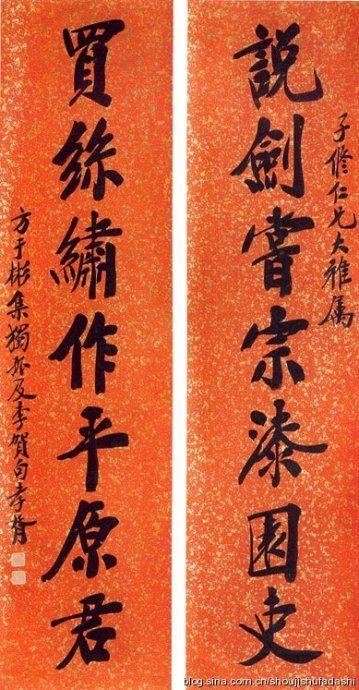 子脩仁兄大雅属
說劍嘗宗漆園吏
買絲繡作平原君
方于彬集獨孤及李賀句孝胥
blog.sina.com.cn/shoujishufadashi